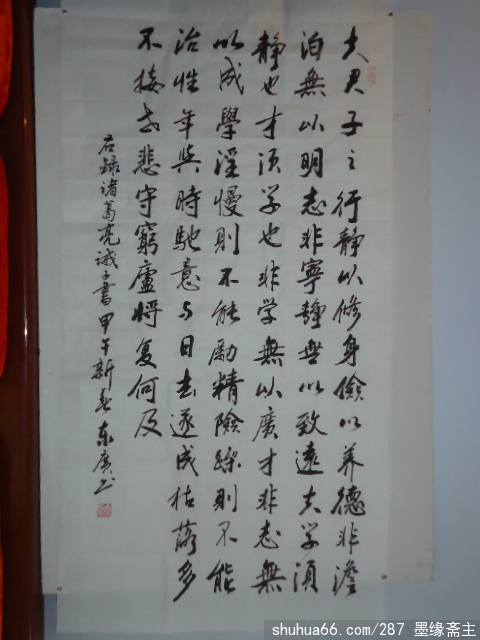 夫君子之行静以修身儉以养德非澹
泊無以明志非寧静無以致遠夫学須
静也才须学也非学無以廣才非志無
以成學淫慢則不能励精險躁則不能
治性年與時馳意与日去遂成枯落多
不接世悲守窮廬將复何及
右録诸葛亮诫子書甲午新春东廣书
shuhua66.com/287 墨缘斋主